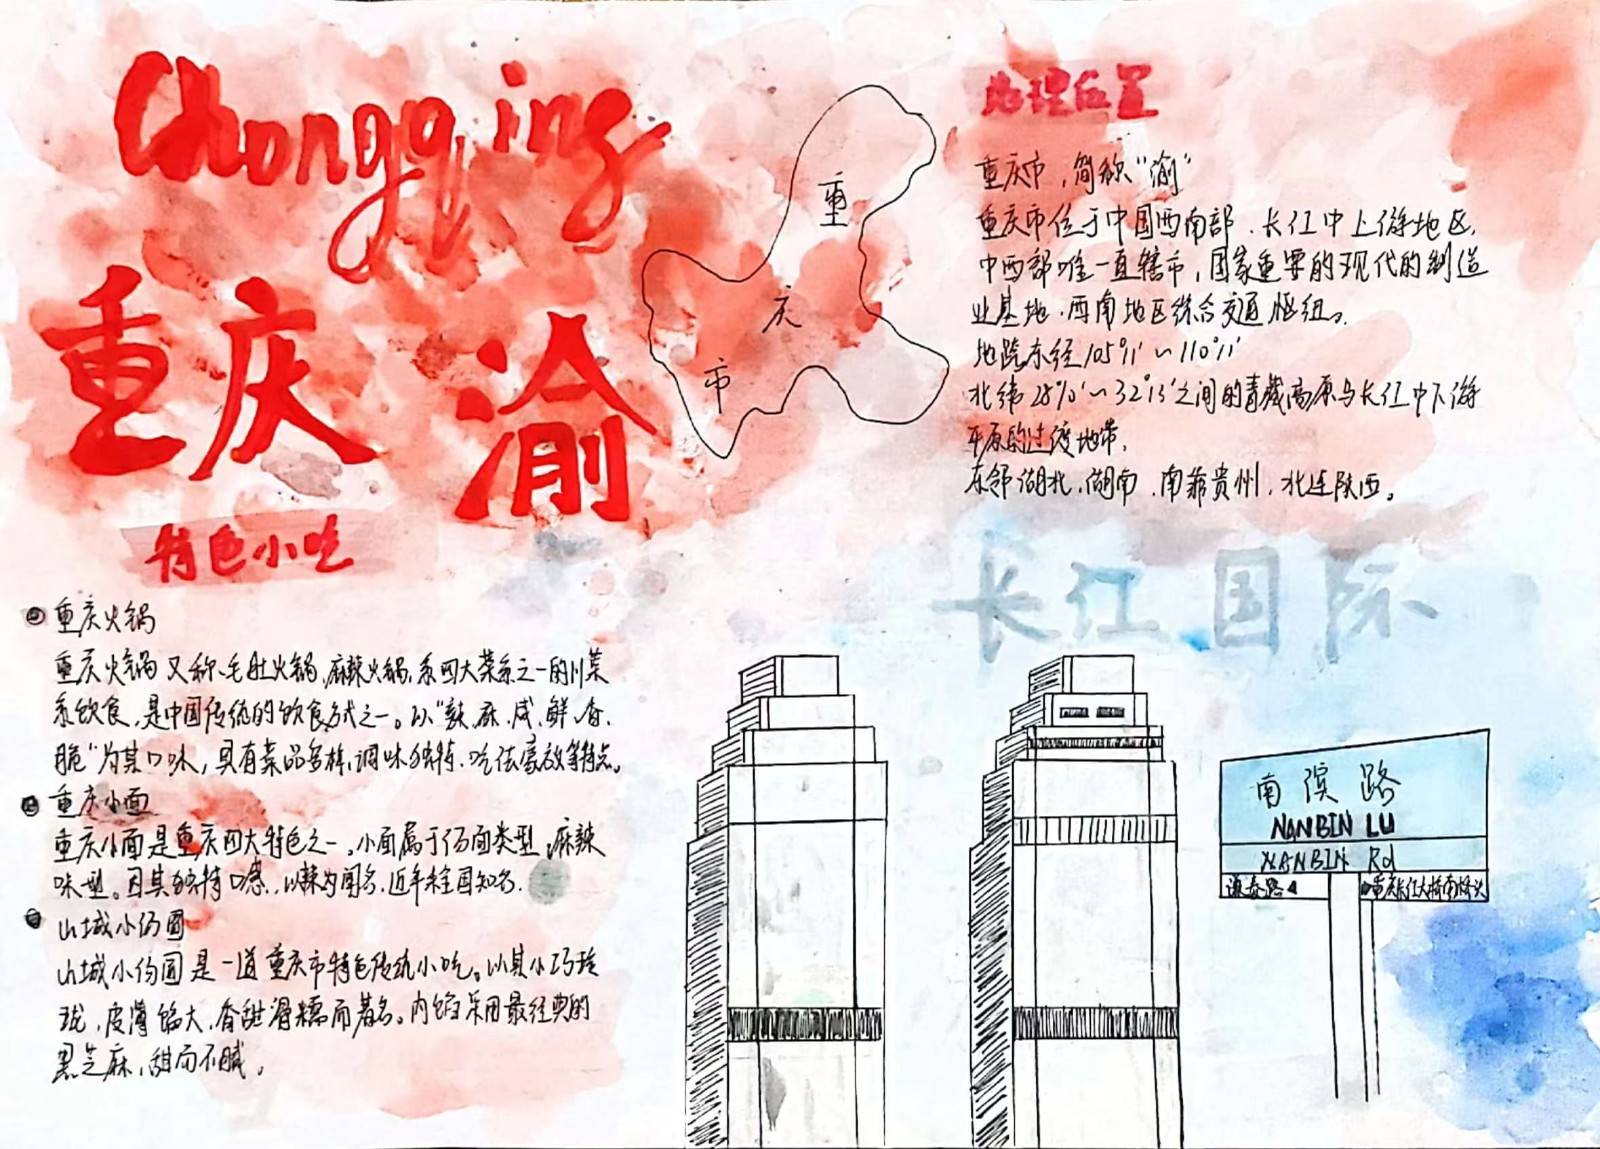 Chongqing
重庆 渝
重
庆
市
地理位置
重庆市，简称“渝”
重庆市位于中国西南部、长江中上游地区，
中西部唯一直辖市，国家重要的现代的制造
业基地，西南地区综合交通枢纽。
地跨东经105°11′～110°11′
北纬28°10′～32°13′之间的青藏高原与长江中下游
平原的过渡地带，
东邻湖北、湖南，南靠贵州，北连陕西。
特色小吃
重庆火锅
重庆火锅又称毛肚火锅，麻辣火锅，系四大菜系之一的川菜
系饮食，是中国传统的饮食方式之一。以“辣、麻、咸、鲜、香、
脆”为其口味，具有菜品多样、调味独特、吃法豪放等特点。
重庆小面
重庆小面是重庆四大特色之一。小面属于汤面类型，麻辣
味型。因其独特口感，以辣为闻名，近年来全国知名。
山城小汤圆
山城小汤圆是一道重庆市特色传统小吃。以其小巧玲
珑，皮薄馅大，香甜滑糯而著名。内馅采用最经典的
黑芝麻，甜而不腻。
长江国际
南滨路
NANBIN LU
NANBIN Rd
重庆长江大桥南桥头